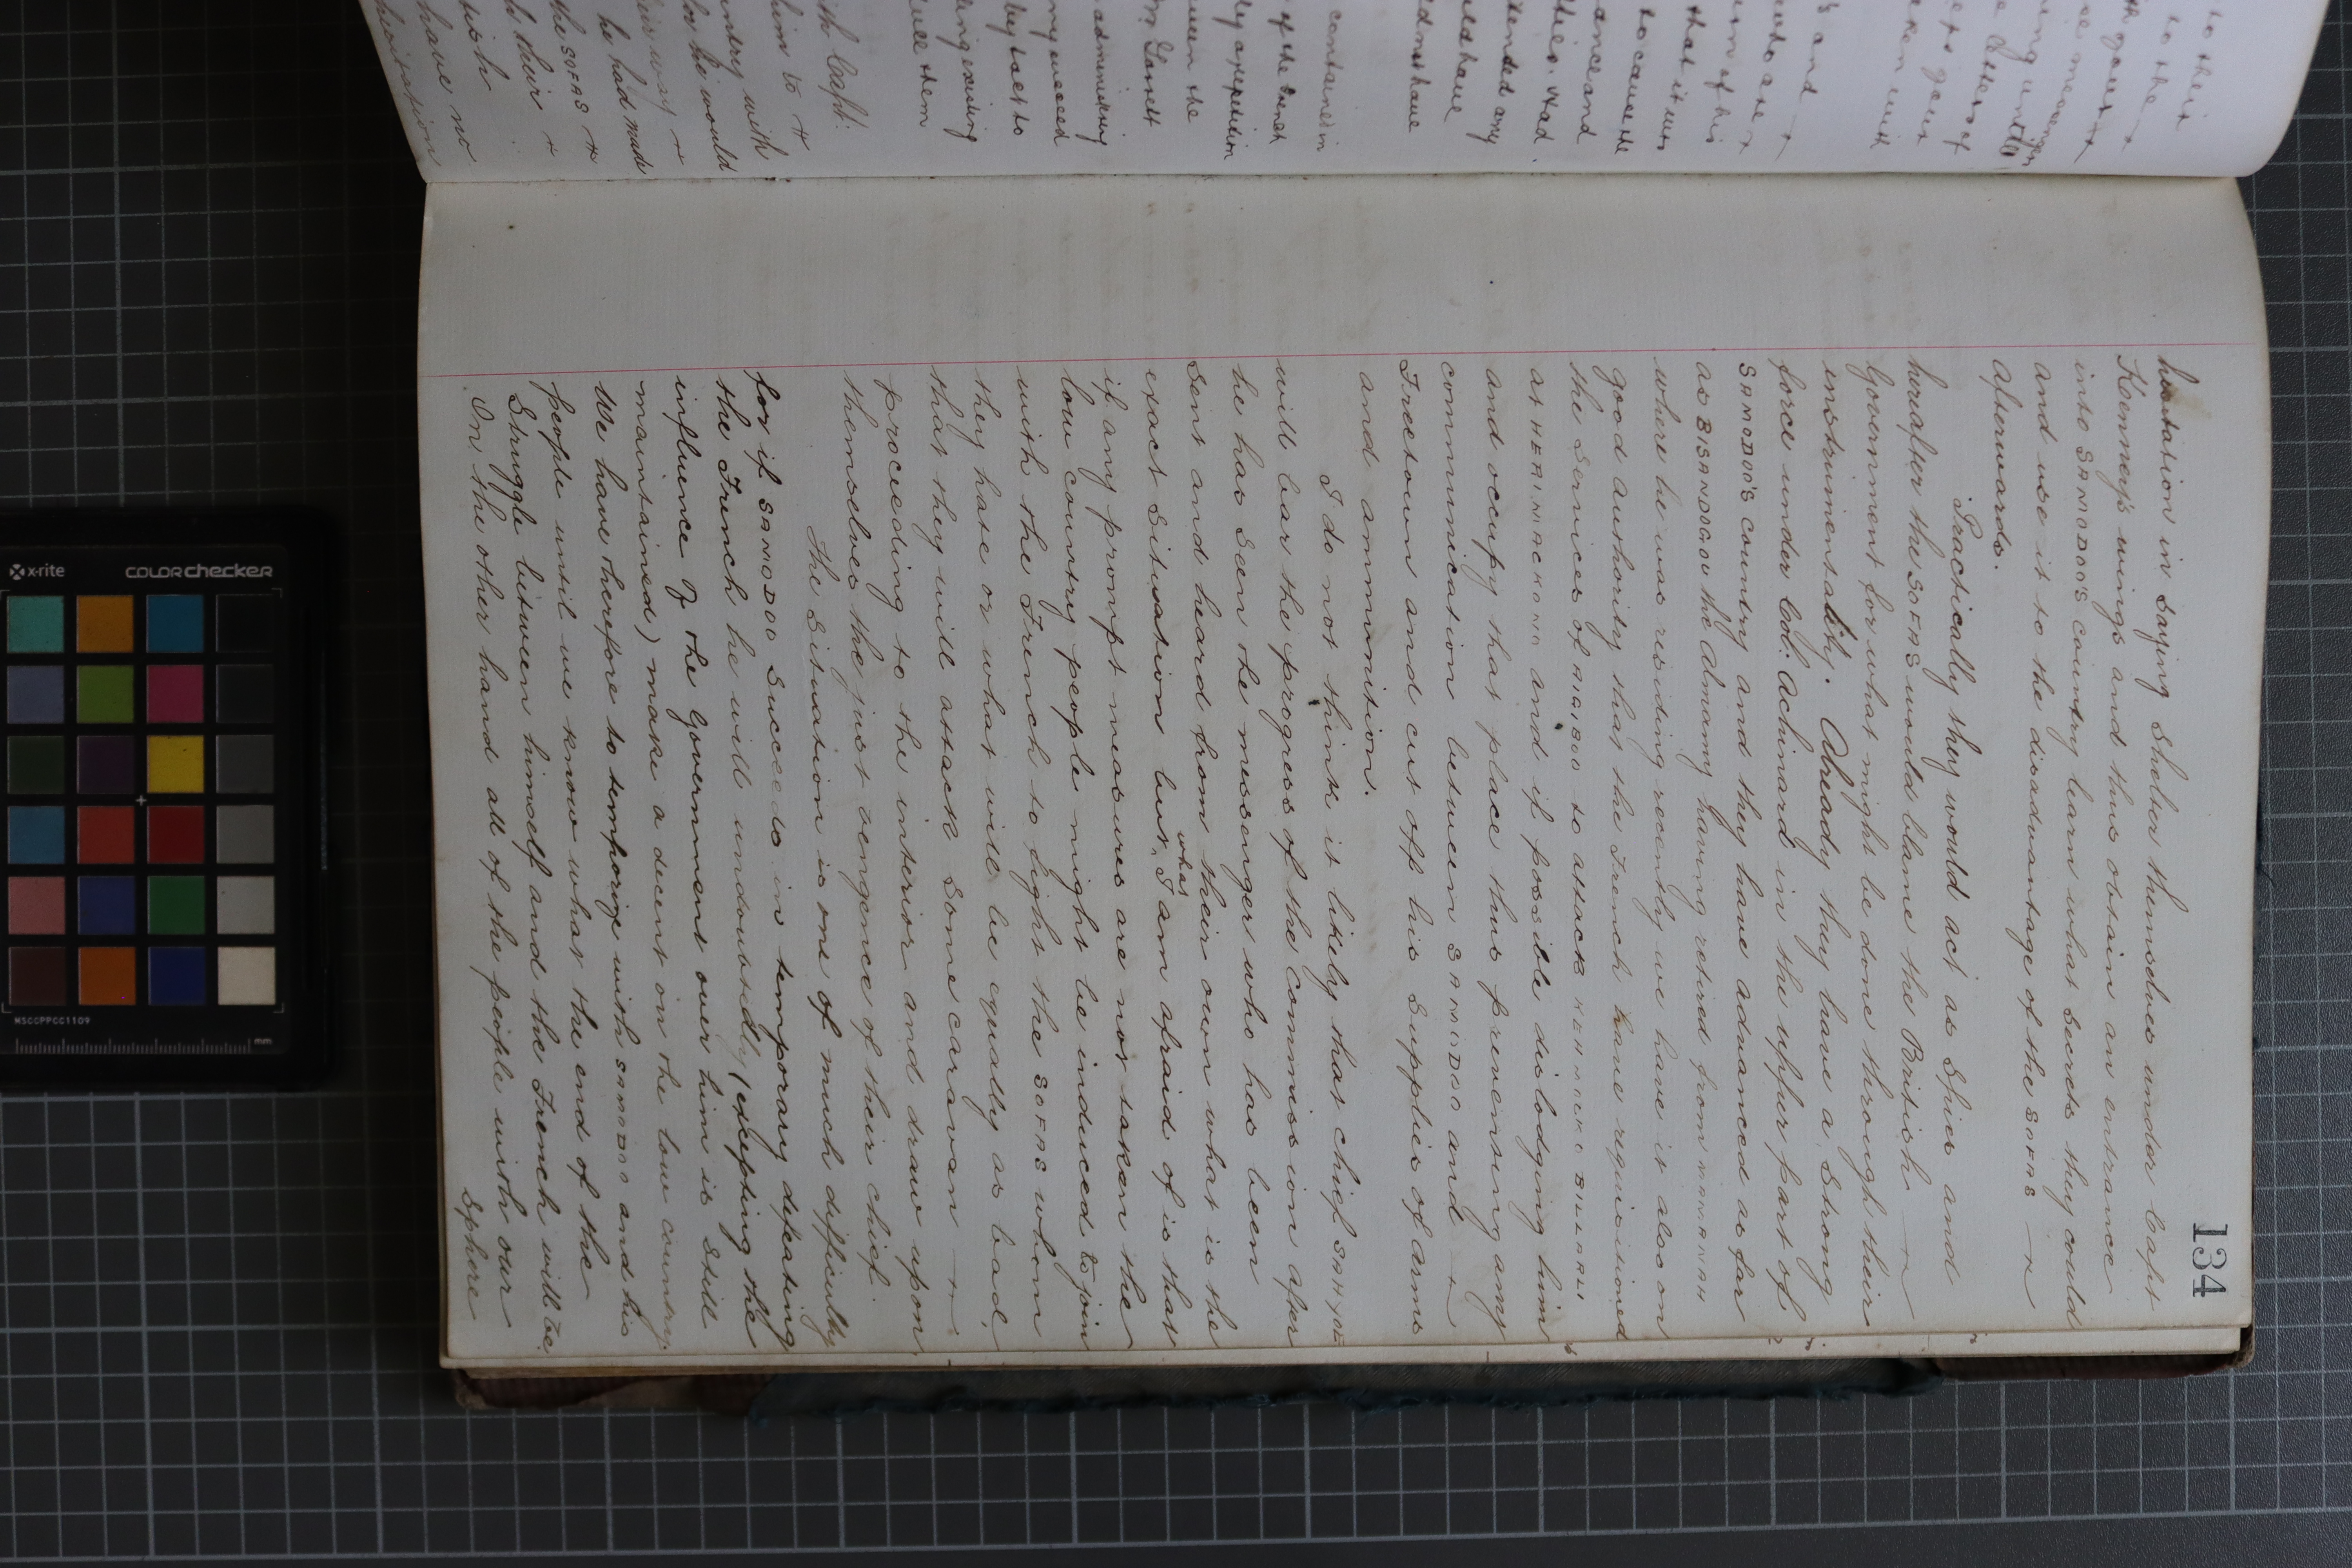 134
hesitation in saying shelter themselves under Capt
Kenney's wings and thus obtain an entrance
into SAMODOO'S country learn what secrets they could
and use it to the disadvantage of the SOFAS
afterwards.
Practically they would act as spies and
herafter the SOFAS would blame the British
Government for what might be done through their
instrumentality. Already they have a strong
force under Col: Achinard in the upper part of
SAMODOO'S country and they have advanced as far
as BISANDOGOU the Almamy having retired from
where he was residing recently we have it also on
good authority that the French have requisitioned
the services of to attack BILLALI
at HERIMAKONO and if possible dislodging him
and occupy that place thus preventing any
communication between SAMODOO and
Freetown and cut off his supplies of arms
and ammunition.
I do not think it likely that chief
will bar the progress of the Commission after
he has seen the messenger who has been
sent and heard from their own what is the
exact situation but what I am afraid of is that
if any prompt measures are not taken the
low country people might be induced to join
with the French to fight the SOFAS whom
they hate or what will be equally as bad,
that they will attack some caravan
proceeding to the interior and draw upon
themselves the just vengence of their chief.
The situation is one of much difficulty
for if SAMODOO succeeds in temporary defeating
the French he will undoubtedly (excepting the
influence of the Government over him is still
maintained) make a decent on the low country.
We have therefore to temporize with SAMODOO and his
people until we know what the end of the
struggle between himself and the French will be.
On the other hand all of the people with our
Sphere
x-rite
COLORchecker
MSCCPPCC1109
mm
to their
to the
Letters of
and
that it was
to cause the
ance and
tended any
uld have
contained in
of the French
ly apposition
ween the
Garrett
administering
they taet to
ing existing
uce them
ith Capt:
him to
ountry with
he would
he had made
the SOFAS
to their
wish
have no
hesitation